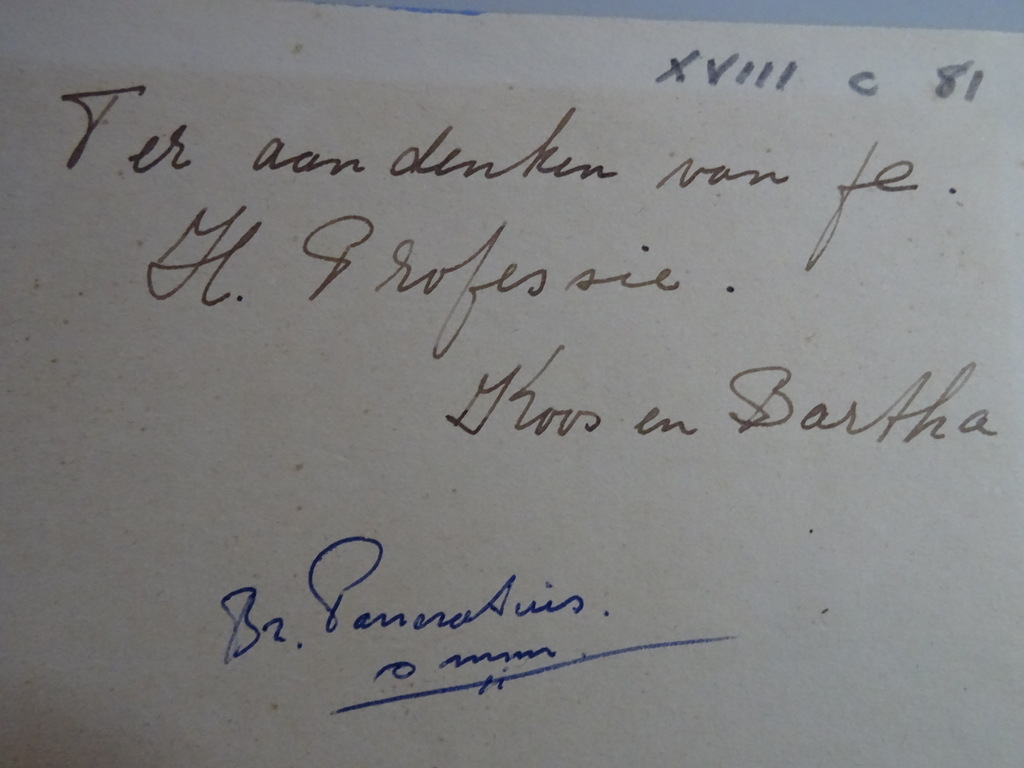 XVIII c 81
Ter aandenken van je.
H. Professie.
Koos en Bartha
Br. Pancratius.